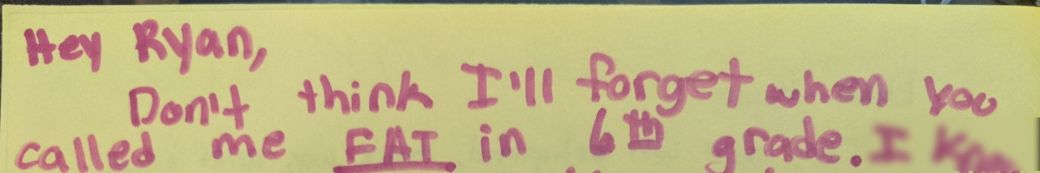 Hey Ryan,
Don't think I'll forget when you
called me FAT in 6th grade. I